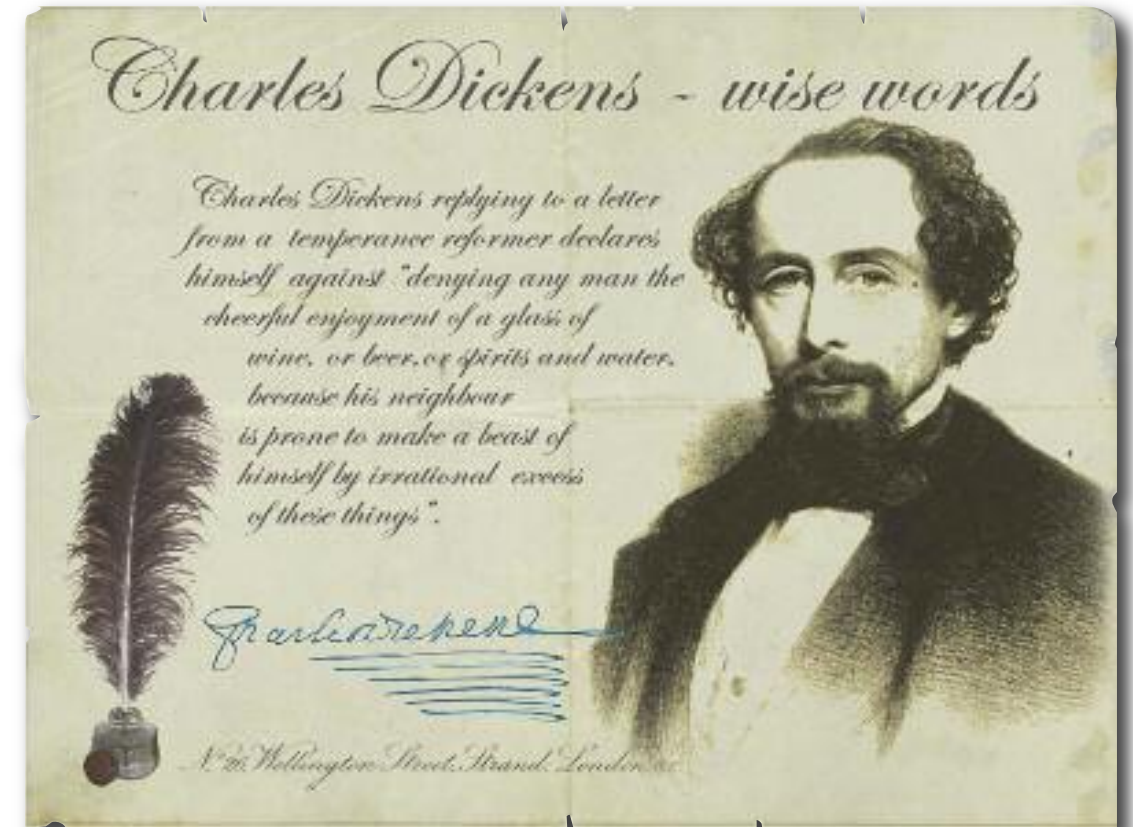 Charles Dickens - wise words
Charles Dickens replying to a letter
from a temperance reformer declares
himself against "denying any man the
cheerful enjoyment of a glass of
wine, or beer, or spirits and water,
because his neighbour
is prone to make a beast of
himself by irrational excess
of these things".
Charles Dickens
No 26, Wellington Street, Strand, London